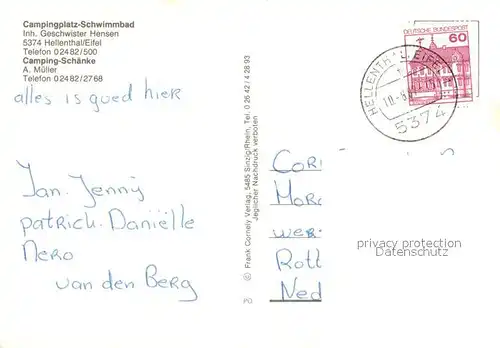 Campingplatz-Schwimmbad
Inh. Geschwister Hensen
5374 Hellenthal/Eifel
Telefon 02482/500
Camping-Schänke
A. Müller
Telefon 02482/2768
alles is goed hier
Jan. Jenny
patrick. Daniëlle
Nero
van den Berg
© Frank Cornely Verlag, 5485 Sinzig/Rhein, Tel. 0 26 42 / 4 28 93
Jeglicher Nachdruck verboten
PO
DEUTSCHE BUNDESPOST
60
HELLENTHAL, EIFEL
5374
Cor
Mor
wer
Rott
Ned
privacy protection
Datenschutz